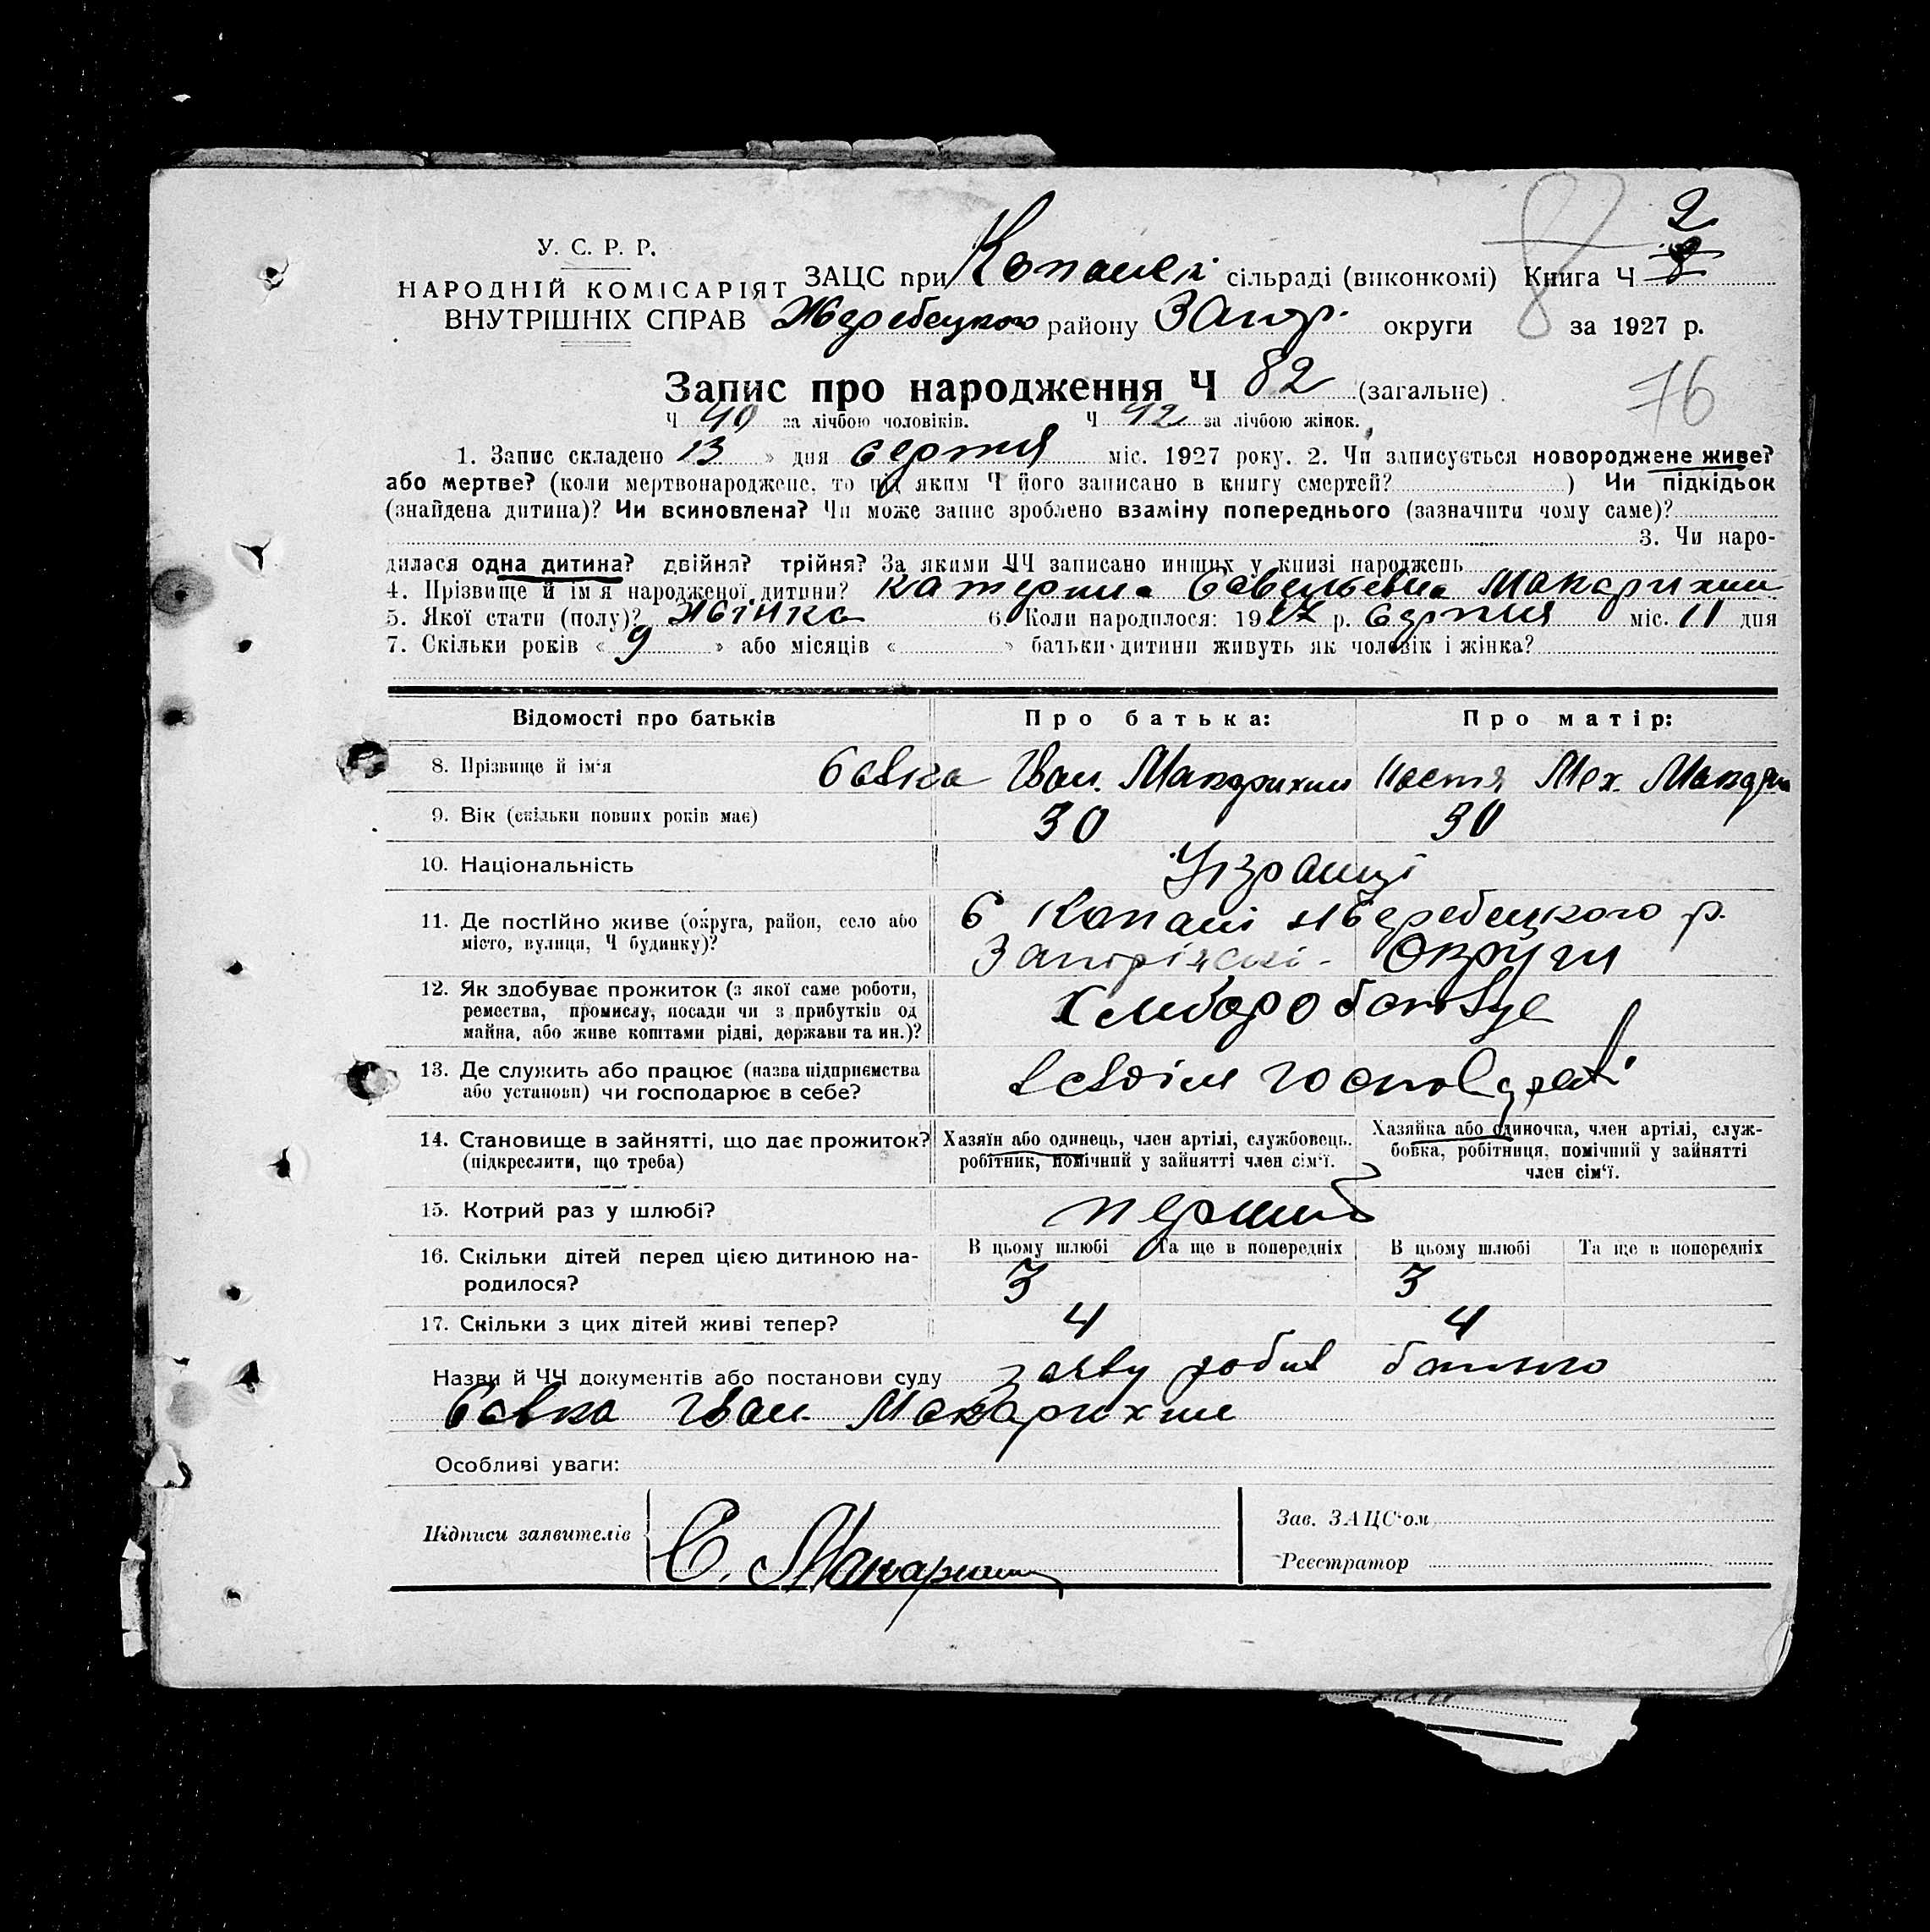 2
8 8
У. С. Р. Р.
НАРОДНІЙ КОМІСАРІЯТ
ВНУТРІШНІХ СПРАВ
ЗАЦС при сільраді (виконкомі) Книга Ч
Жеребецкого району Запор. округи за 1927 р.
Запис про народження Ч 82 (загальне)
76
Ч 40 за лічбою чоловіків. Ч 42 за лічбою жінок.
1. Запис складено « 13 » дня серпня міс. 1927 року. 2. Чи записується новороджене живе?
або мертве? (коли мертвонароджене, то під яким Ч його записано в книгу смертей? ) Чи підкідьок
(знайдена дитина)? Чи всиновлена? Чи може запис зроблено взаміну попереднього (зазначити чому саме)?
3. Чи наро-
дилася одна дитина? двійня? трійня? За якими ЧЧ записано инших у книзі народжень
4. Прізвище й ім'я народженої дитини? Катерина Савельевна Макарихин
5. Якої стати (полу)? Жінка 6. Коли народилося: 1927 р. Серпня міс. 11 дня
7. Скільки років « 9 » або місяців « » батьки дитини живуть як чоловік і жінка?
Відомості про батьків Про батька: Про матір:
8. Прізвище й ім'я Савка Іван. Макарихин Настя Мех.
9. Вік (скільки повних років має) 30 30
10. Національність Українці
11. Де постійно живе (округа, район, село або
місто, вулиця, Ч будинку)?
С Копані Жеребецкого р.
округи
12. Як здобуває прожиток (з якої саме роботи,
ремества, промислу, посади чи з прибутків од
майна, або живе коштами рідні, держави та ин.)?
13. Де служить або працює (назва підприємства
або установи) чи господарює в себе?
14. Становище в зайнятті, що дає прожиток?
(підкреслити, що треба)
Хазяїн або одинець, член артілі, службовець,
робітник, помічний у зайнятті член сім'ї.
Хазяйка або одиночка, член артілі, служ-
бовка, робітниця, помічний у зайнятті
член сім'ї.
15. Котрий раз у шлюбі? перший
16. Скільки дітей перед цією дитиною на-
родилося?
В цьому шлюбі Та ще в попередніх В цьому шлюбі Та ще в попередніх
3 3
17. Скільки з цих дітей живі тепер? 4 4
Назви й ЧЧ документів або постанови суду заяву робив батько
Савка Іван Макарихин
Особливі уваги:
Підписи заявителів
С. Макарихин
Зав. ЗАЦС'ом
Реєстратор